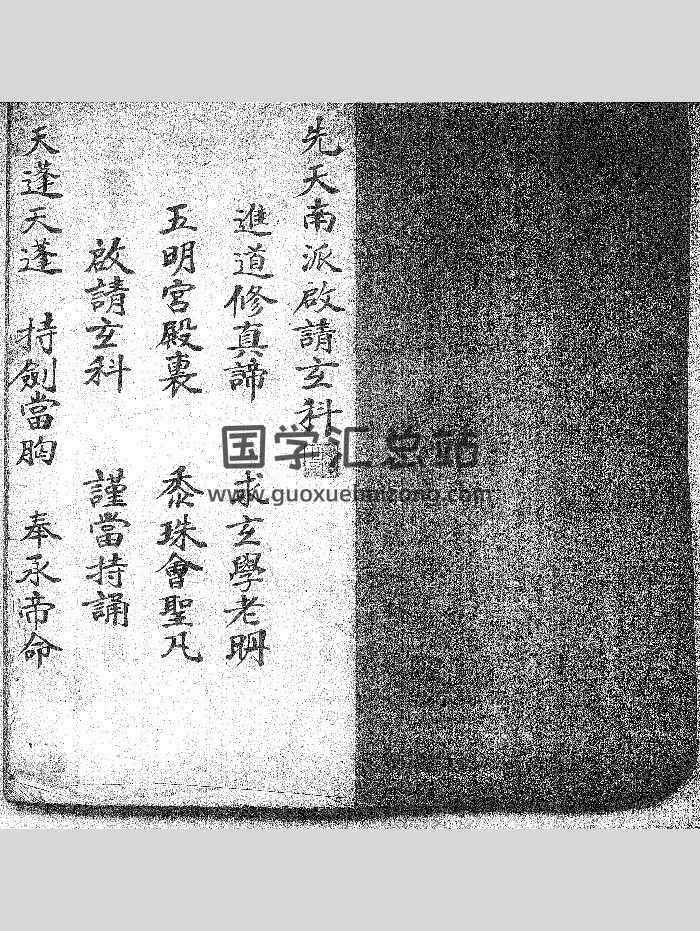 先天南派啟請玄科
進道修真諦　求玄學老聃
五明宮殿裏　黍珠會聖凡
啟請玄科　謹當持誦
天蓬天蓬　持劍當胸　奉承帝命
国学汇总站
www.guoxuehuizong.com